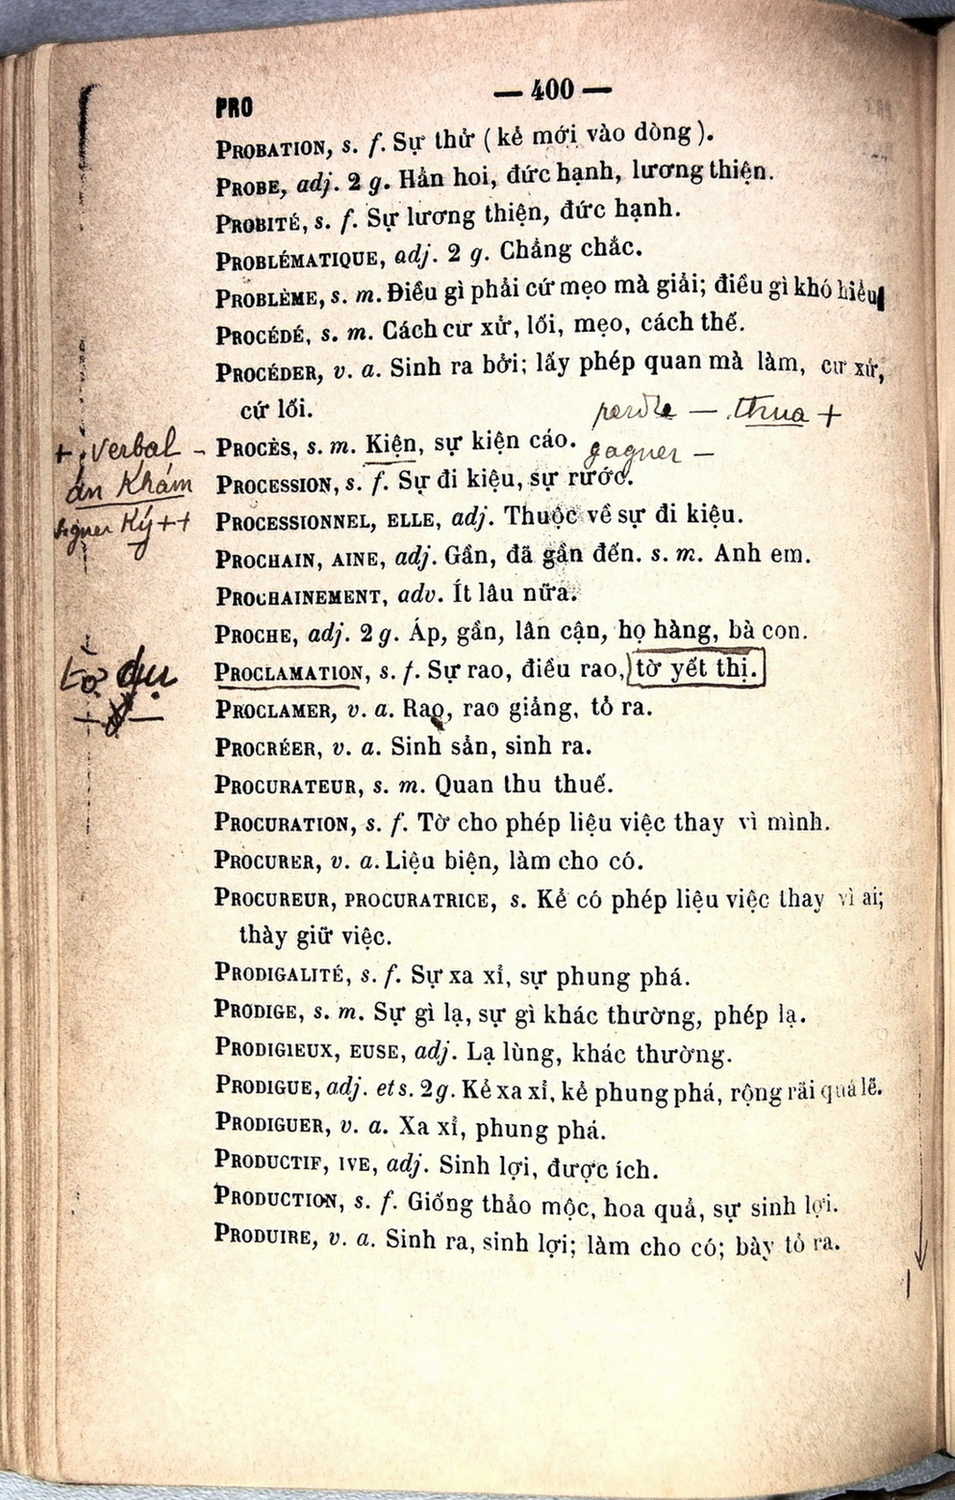 PRO — 400 —
PROBATION, s. f. Sự thử (kẻ mới vào dòng).
PROBE, adj. 2 g. Hẳn hoi, đức hạnh, lương thiện.
PROBITÉ, s. f. Sự lương thiện, đức hạnh.
PROBLÉMATIQUE, adj. 2 g. Chẳng chắc.
PROBLÈME, s. m. Điều gì phải cứ mẹo mà giải; điều gì khó hiểu
PROCÉDÉ, s. m. Cách cư xử, lối, mẹo, cách thế.
PROCÉDER, v. a. Sinh ra bởi; lấy phép quan mà làm, cư xử,
cứ lối.
perdre — thua +
+ verbal - PROCÈS, s. m. Kiện, sự kiện cáo. gagner —
án Khám PROCESSION, s. f. Sự đi kiệu, sự rước.
signer Ký ++ PROCESSIONNEL, ELLE, adj. Thuộc về sự đi kiệu.
PROCHAIN, AINE, adj. Gần, đã gần đến. s. m. Anh em.
PROCHAINEMENT, adv. Ít lâu nữa.
PROCHE, adj. 2 g. Áp, gần, lân cận, họ hàng, bà con.
tờ dụ PROCLAMATION, s. f. Sự rao, điều rao, tờ yết thị.
PROCLAMER, v. a. Rao, rao giảng, tỏ ra.
PROCRÉER, v. a. Sinh sản, sinh ra.
PROCURATEUR, s. m. Quan thu thuế.
PROCURATION, s. f. Tờ cho phép liệu việc thay vì mình.
PROCURER, v. a. Liệu biện, làm cho có.
PROCUREUR, PROCURATRICE, s. Kẻ có phép liệu việc thay vì ai;
thày giữ việc.
PRODIGALITÉ, s. f. Sự xa xỉ, sự phung phá.
PRODIGE, s. m. Sự gì lạ, sự gì khác thường, phép lạ.
PRODIGIEUX, EUSE, adj. Lạ lùng, khác thường.
PRODIGUE, adj. et s. 2 g. Kẻ xa xỉ, kẻ phung phá, rộng rãi quá lẽ.
PRODIGUER, v. a. Xa xỉ, phung phá.
PRODUCTIF, IVE, adj. Sinh lợi, được ích.
PRODUCTION, s. f. Giống thảo mộc, hoa quả, sự sinh lợi.
PRODUIRE, v. a. Sinh ra, sinh lợi; làm cho có; bày tỏ ra.